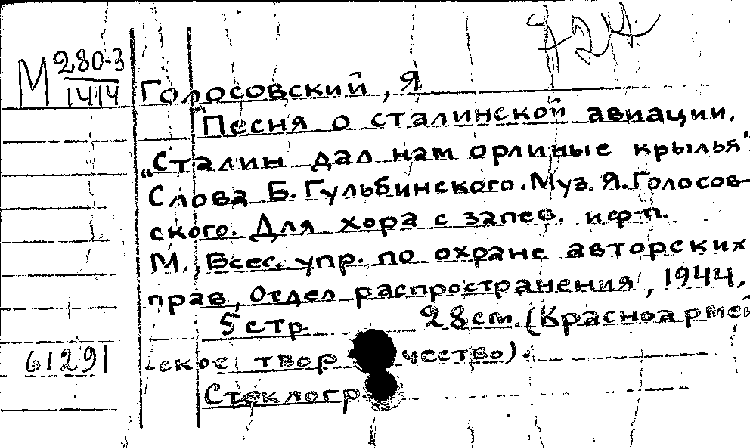 724
М 280-3
1414
Голосовский, Я
Песня о сталинской авиации.
„Сталин дал нам орлиные крылья"
Слова Б. Гульбинского. Муз. Я. Голосов-
ского. Для хора с запев. и ф-п.
М., Всес. упр. по охране авторских
прав, Отдел распространения, 1944.
5 стр 28 см. (Красноармей
ское твор чество).
61291
Стеклогр